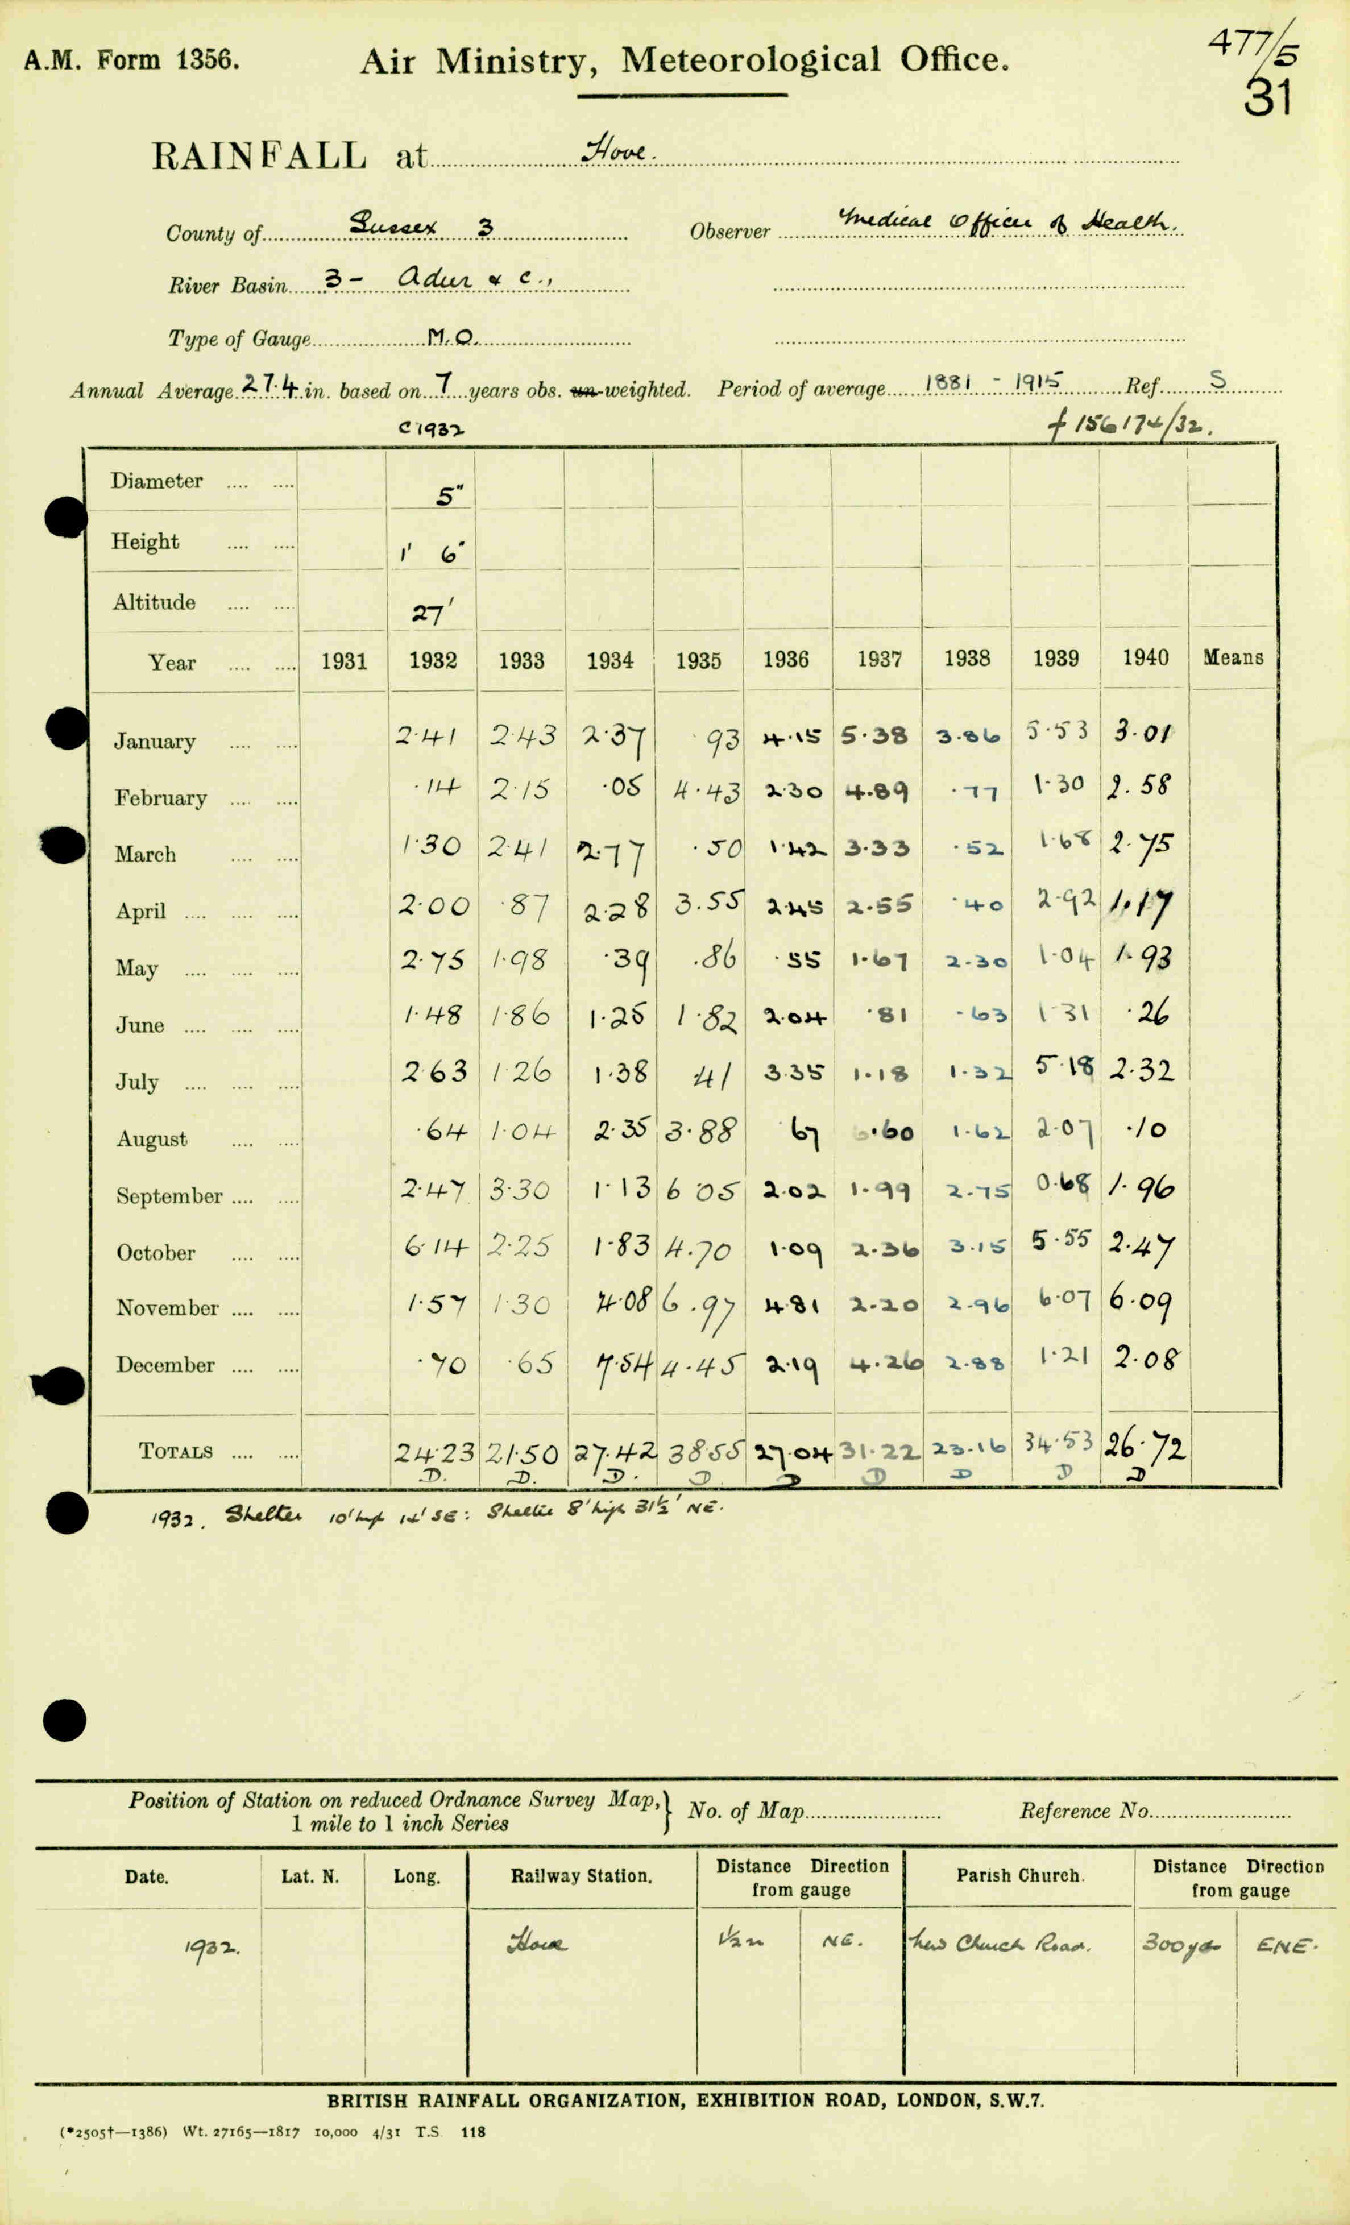 A.M. Form 1356.
Air Ministry, Meteorological Office.
477/5
31
RAINFALL at Hove.
County of Sussex 3 Observer Medical Officer of Health.
River Basin 3 - Adur & c.,
Type of Gauge M.O.
Annual Average 27.4 in. based on 7 years obs. un-weighted. Period of average 1881 - 1915 Ref. S
C 1932 f 156174/32.
Diameter 5"
Height 1' 6"
Altitude 27'
Year 1931 1932 1933 1934 1935 1936 1937 1938 1939 1940 Means
January 2.41 2.43 2.37 93 4.15 5.38 3.86 5.53 3.01
February .14 2.15 .05 4.43 2.30 4.89 .77 1.30 2.58
March 1.30 2.41 2.77 .50 1.42 3.33 .52 1.68 2.75
April 2.00 .87 2.28 3.55 2.45 2.55 .40 2.92 1.17
May 2.75 1.98 .39 .86 .55 1.67 2.30 1.04 1.93
June 1.48 1.86 1.25 1.82 2.04 .81 .63 1.31 .26
July 2.63 1.26 1.38 41 3.35 1.18 1.32 5.18 2.32
August .64 1.04 2.35 3.88 67 .60 1.62 2.07 .10
September 2.47 3.30 1.13 6 05 2.02 1.99 2.75 0.68 1.96
October 6.14 2.25 1.83 4.70 1.09 2.36 3.15 5.55 2.47
November 1.57 1.30 4.08 6.97 4.81 2.20 2.96 6.07 6.09
December .70 .65 7.54 4.45 2.19 4.26 2.88 1.21 2.08
TOTALS 24.23 21.50 27.42 38.55 27.04 31.22 23.16 34.53 26.72
D. D. D. D D D D D D
1932. Shelter 10' high 14' SE: Shelter 8' high 31½' NE.
Position of Station on reduced Ordnance Survey Map,
1 mile to 1 inch Series
No. of Map
Reference No.
Date. Lat. N. Long. Railway Station. Distance Direction from gauge Parish Church. Distance Direction from gauge
1932. Hove ½ m NE. New Church Road. 300 yds ENE.
BRITISH RAINFALL ORGANIZATION, EXHIBITION ROAD, LONDON, S.W.7.
(*2505†—1386) Wt. 27165—1817 10,000 4/31 T.S. 118